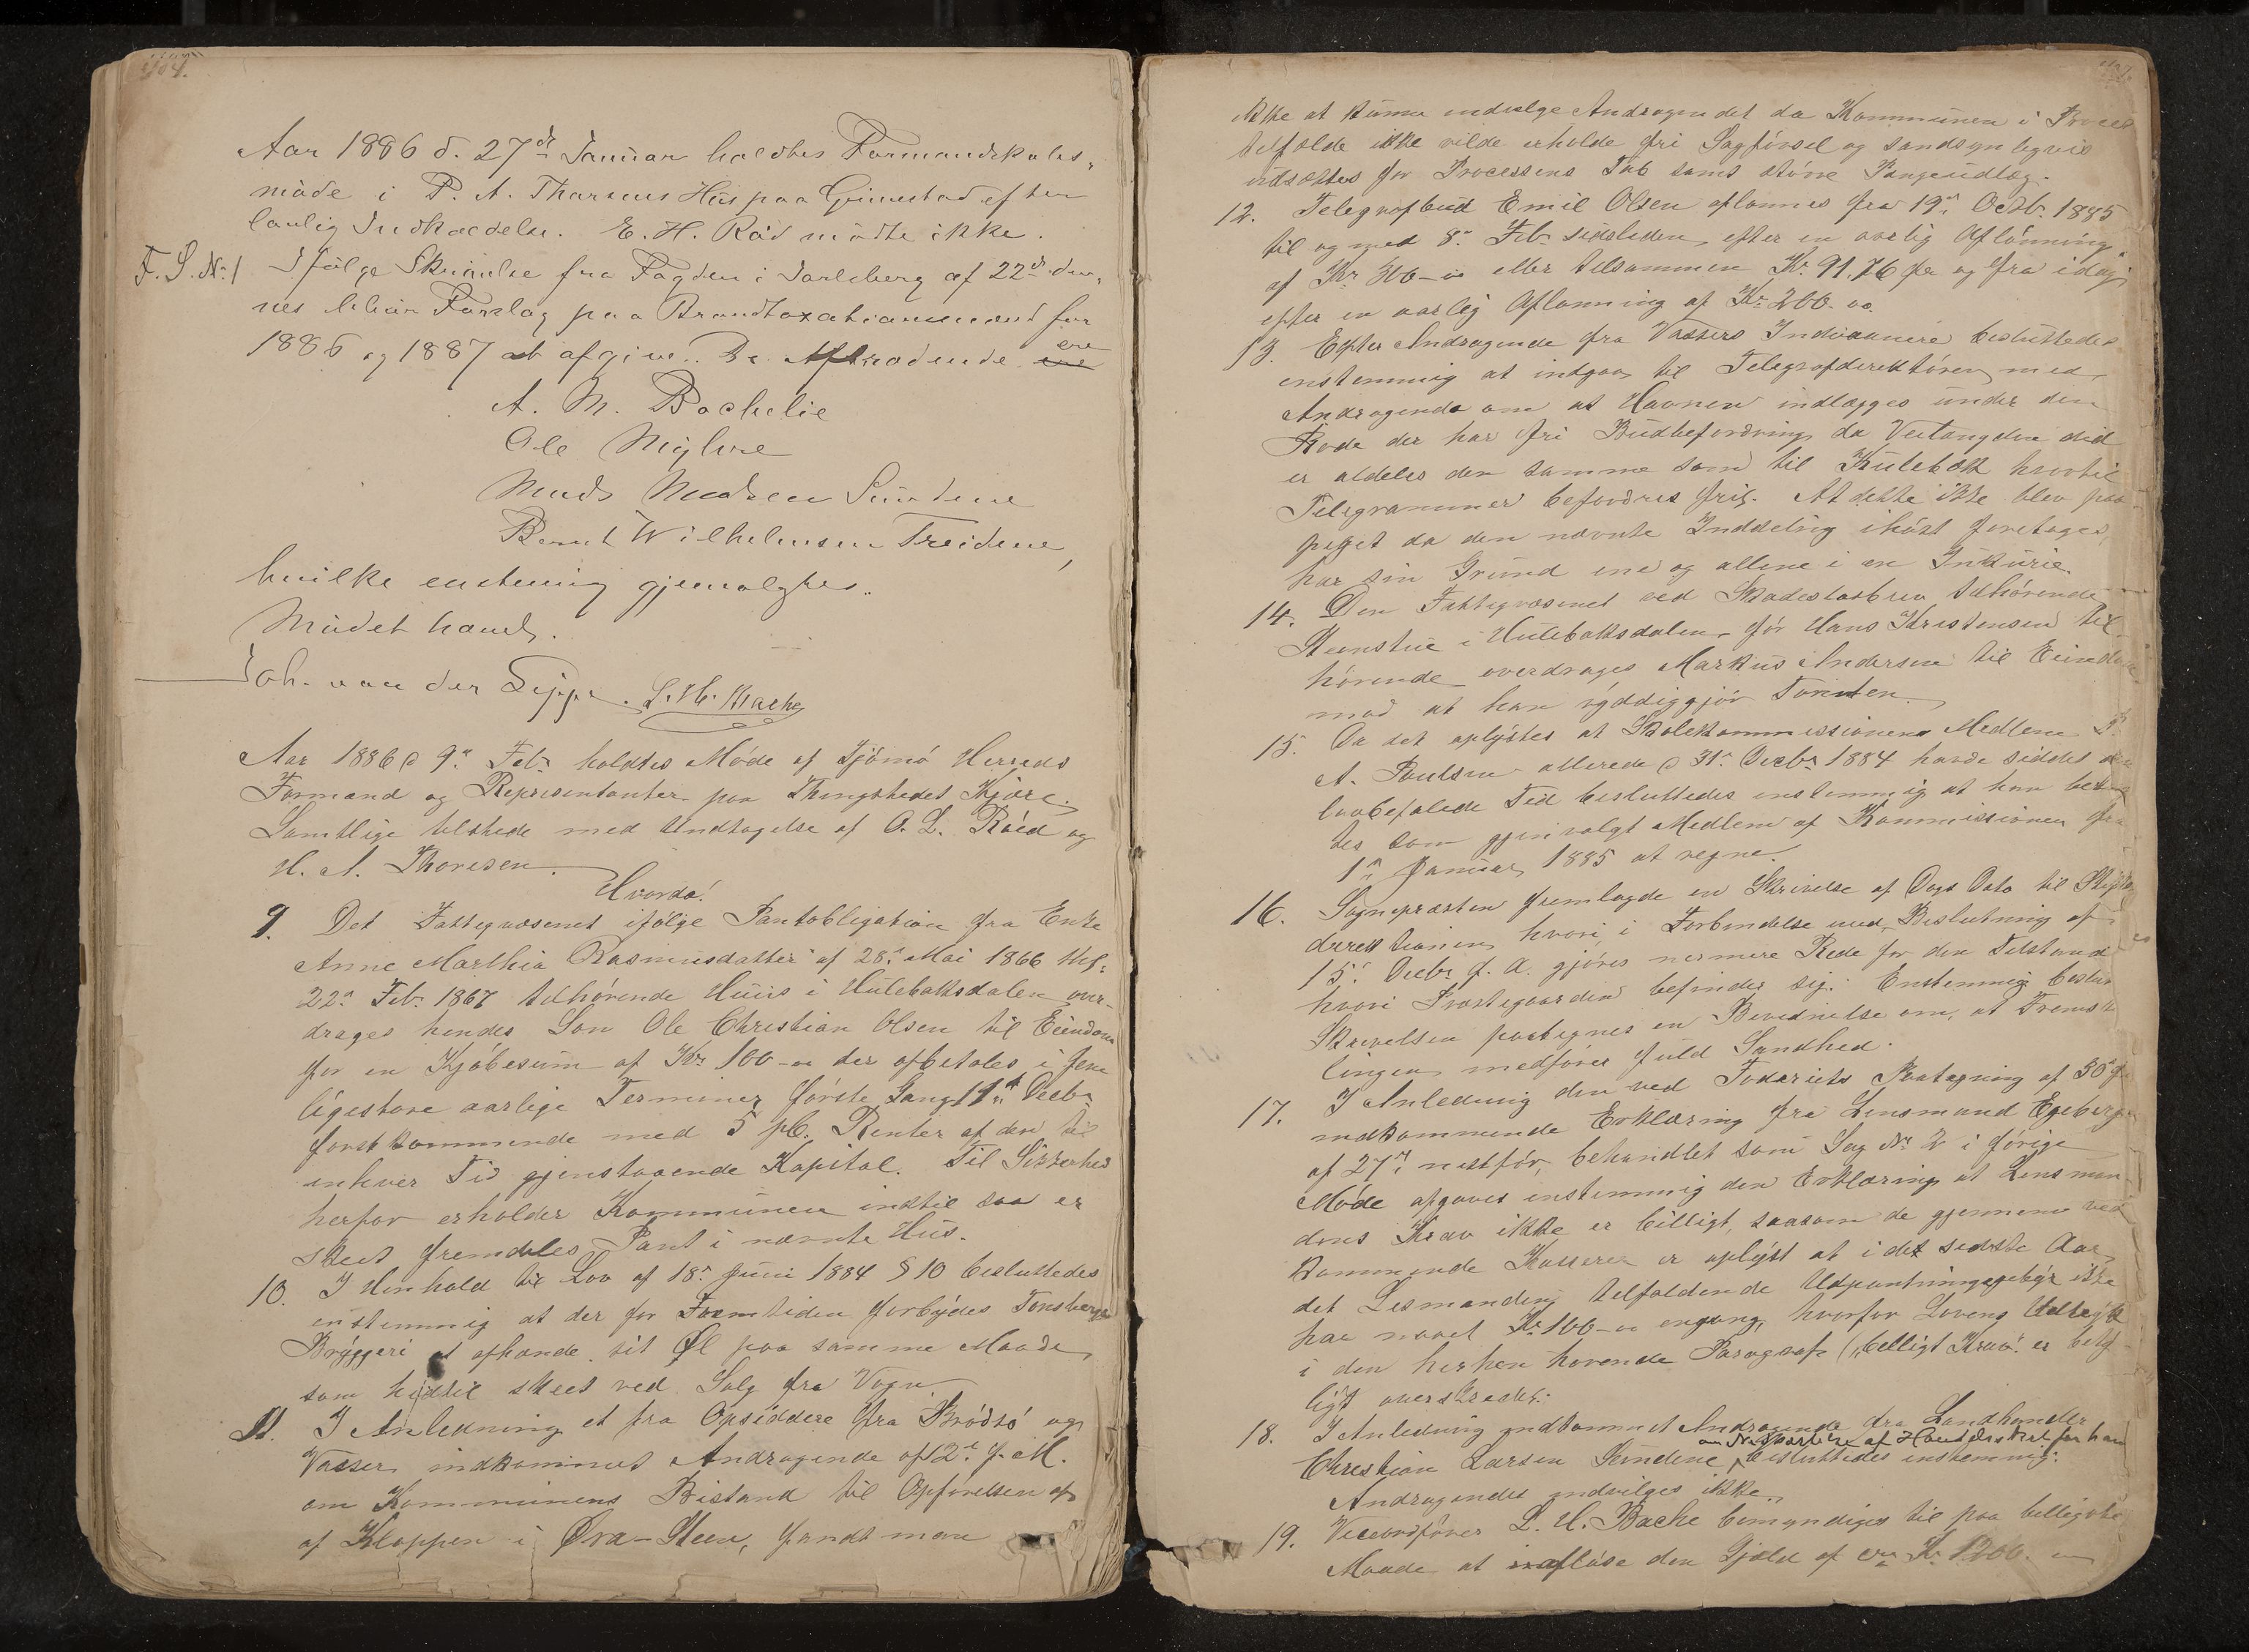 404.
Aar 1886 d. 27de Januar holdtes Formandskabs-
møde i P. A. Hus paa Grimestad efter
lovlig Indkaldelse. E. H. Röd mødte ikke.
F. S. No 1 Ifølge Skrivelse fra Fogden i Jarlsberg af 22de
nes bliver Forslag paa Brandtaxationsmænd for
1886 og 1887 at afgive. De Aftrædende ere
A. M. Bachelie
Ole
Mads Madsen Sundene
Bernt Wilhelmsen Treidene,
hvilke enstemig gjenvalgtes.
Mødet hævet.
Joh. van der Lippe. L. H. Bache
Aar 1886 d 9de Febr holdtes Møde af Tjömö Herreds
Formand og Representanter paa Thingstedet Kjære.
Samtlige tilstede med Undtagelse af O. L. Röed og
H. A. Thoresen.
Hvorda!
9. Det Fattigvæsenet ifølge Pantobligation fra Enke
Anne Marthia Rasmusdatter af 28de Mai 1866
22de Febr 1867 tilhørende Huus i Hulebaksdalen over-
drages hendes Søn Ole Christian Olsen til Eiendom
for en Kjøbesum af Kr 100-oo der afbetales i fem
ligestore aarlige Terminer første Gang 11te Decbr
førstkommende med 5 pC. Renter af den til
enhver Tid gjenstaaende Kapital. Til Sikkerhed
herfor erholder Kommunen indtil saa er
skeet fremdeles Pant i nævnte Hus.
10. I Henhold til Lov af 18de Juni 1884 § 10 besluttedes
enstemmig at der for Fremtiden forbydes Tønsbergs
Bryggeri at afhænde sit Øl paa samme Maade
som hidtil skeet ved Salg fra Vogn
11. I Anledning et fra Opsiddere fra Brødsø og
Vasser indkommet Andragende af 2de f. M.
om Kommunens Bistand til Opførelsen af
af Kloppen i Øra-Kleen, fandt man
ikke at kunne indvilge Andragendet da Kommunen i Proces
tilfælde ikke vilde erholde fri Sagførsel og sandsynligvis
udsættes for Processens Tab samt større Pengeudlæg.
12. Telegrafbud Emil Olsen aflønnes fra 19de Octbr 1885
til og med 8de Febr sidsleden efter en aarlig Aflønning
af Kr 300-oo eller tilsammen Kr 91.76 øre og fra idag
efter en aarlig Aflønning af Kr 200-oo.
13. Efter Andragende fra Vassers Indvaanere besluttedes
enstemmig at indgaa til Telegrafdirektøren med
Andragende om at Havnen indlægges under den
Rode der har fri Budbefordring da Veilængden did
er aldeles den samme som til Hulebak hvortil
Telegrammer befordres frit. At dette ikke blev paa
peget da den nævnte Inddeling ihøst foretoges,
har sin Grund ene og allene i en Inkurie.
14. Den Fattigvæsenet ved Skadesløsbrev tilhørende
Steenstue i Hulebaksdalen før Hans Kristensen til-
hørende overdrages Markus Andersen til Eiendom
mod at han ryddiggjør Tomten.
15. Da det oplystes at Skolekommissionens Medlem P.
A. Poulsen allerede d 31te Decbr 1884 havde siddet den
lovbefalede Tid besluttedes enstemmig at han betrag
tes som gjenvalgt Medlem af Kommissionen fra
1te Januar 1885 at regne.
16. Sognepræsten fremlagde en Skrivelse af Dags Dato til Stifts
direktionen hvori i Forbindelse med Beslutning af
15de Decbr f. A. gjøres nærmere Rede for den Tilstand
hvori Præstegaarden befinder sig. Enstemmig beslut
Skrivelsen paategnes en Bevidnelse om, at Fremstil
lingen medfører fuld Sandhed.
17. I Anledning den ved Foderiets Paategning af 30te f.
indkommende Erklæring fra Lensmand Egeberg
af 27de næstfør, behandlet som Sag No 2 i forrige
Møde afgaves enstemmig den Erklæring at Lensman
dens Krav ikke er billigt, saasom de gjennem ved
kommende Kasserer er oplyst at i det sidste Aar
det Lesmanden tilfaldende Udpantningsgebyr ikke
har naaet Kr 100-oo engang, hvorfor Lovens Udtryk
i den herhen hørende Paragraf („billigt Krav“ er betyde
ligt overskredet.
18. I Anledning indkommet Andragende fra Landhandler
om Nedsættelse af Handelsskat for ham
Christian Larsen Sundene, besluttedes enstemmig:
Andragendet indvilges ikke.
19. Viceordfører L. H. Bache bemyndiges til paa billigste
Maade at afløse den Gjæld af Kr 1200.